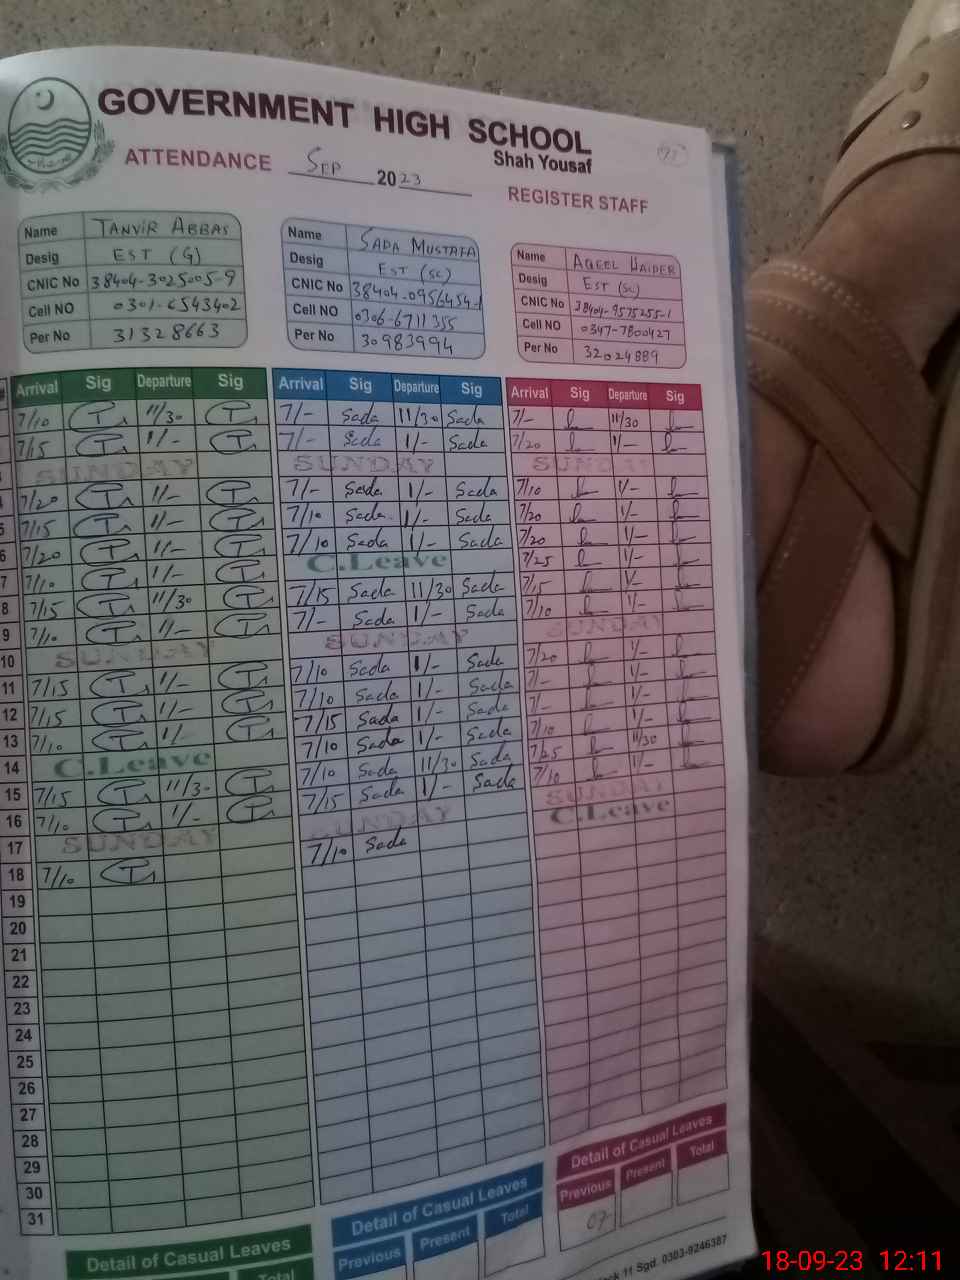 GOVERNMENT HIGH SCHOOL
Shah Yousaf
ATTENDANCE SEP 2023
REGISTER STAFF
Name TANVIR ABBAS
Desig EST (G)
CNIC No 38404-3025005-9
Cell NO 0301-6543402
Per No 31328663
Name SADA MUSTAFA
Desig EST (SC)
CNIC No 38404-0956454-1
Cell NO 0306-6711355
Per No 30983994
Name AQEEL HAIDER
Desig EST (SC)
CNIC No 38404-9575255-1
Cell NO 0347-7800427
Per No 32024889
# Arrival Sig Departure Sig Arrival Sig Departure Sig Arrival Sig Departure Sig
7/10 11/30 7/- Sada 11/30 Sada 7/- 11/30
7/15 1/- 7/- Sada 1/- Sada 7/20 1/-
SUNDAY SUNDAY SUNDAY
4 7/20 1/- 7/- Sada 1/- Sada 7/10 1/-
5 7/15 1/- 7/10 Sada 1/- Sada 7/20 1/-
6 7/20 1/- 7/10 Sada 1/- Sada 7/20 1/-
7 7/10 1/- C.Leave 7/25 1/-
8 7/15 11/30 7/15 Sada 11/30 Sada 7/15 1/-
9 7/10 1/- 7/- Sada 1/- Sada 7/10 1/-
10 SUNDAY SUNDAY SUNDAY
11 7/15 1/- 7/10 Sada 1/- Sada 7/20 1/-
12 7/15 1/- 7/10 Sada 1/- Sada 7/- 1/-
13 7/10 1/- 7/15 Sada 1/- Sada 7/- 1/-
14 C.Leave 7/10 Sada 1/- Sada 7/10 1/-
15 7/15 11/30 7/10 Sada 11/30 Sada 7/25 11/30
16 7/10 1/- 7/15 Sada 1/- Sada 7/10 1/-
17 SUNDAY SUNDAY SUNDAY
18 7/10 7/10 Sada C.Leave
19
20
21
22
23
24
25
26
27
28
29
30
31
Detail of Casual Leaves
Total
Detail of Casual Leaves
Previous Present Total
Detail of Casual Leaves
Previous Present Total
07
11 Sgd. 0303-9246387
18-09-23 12:11